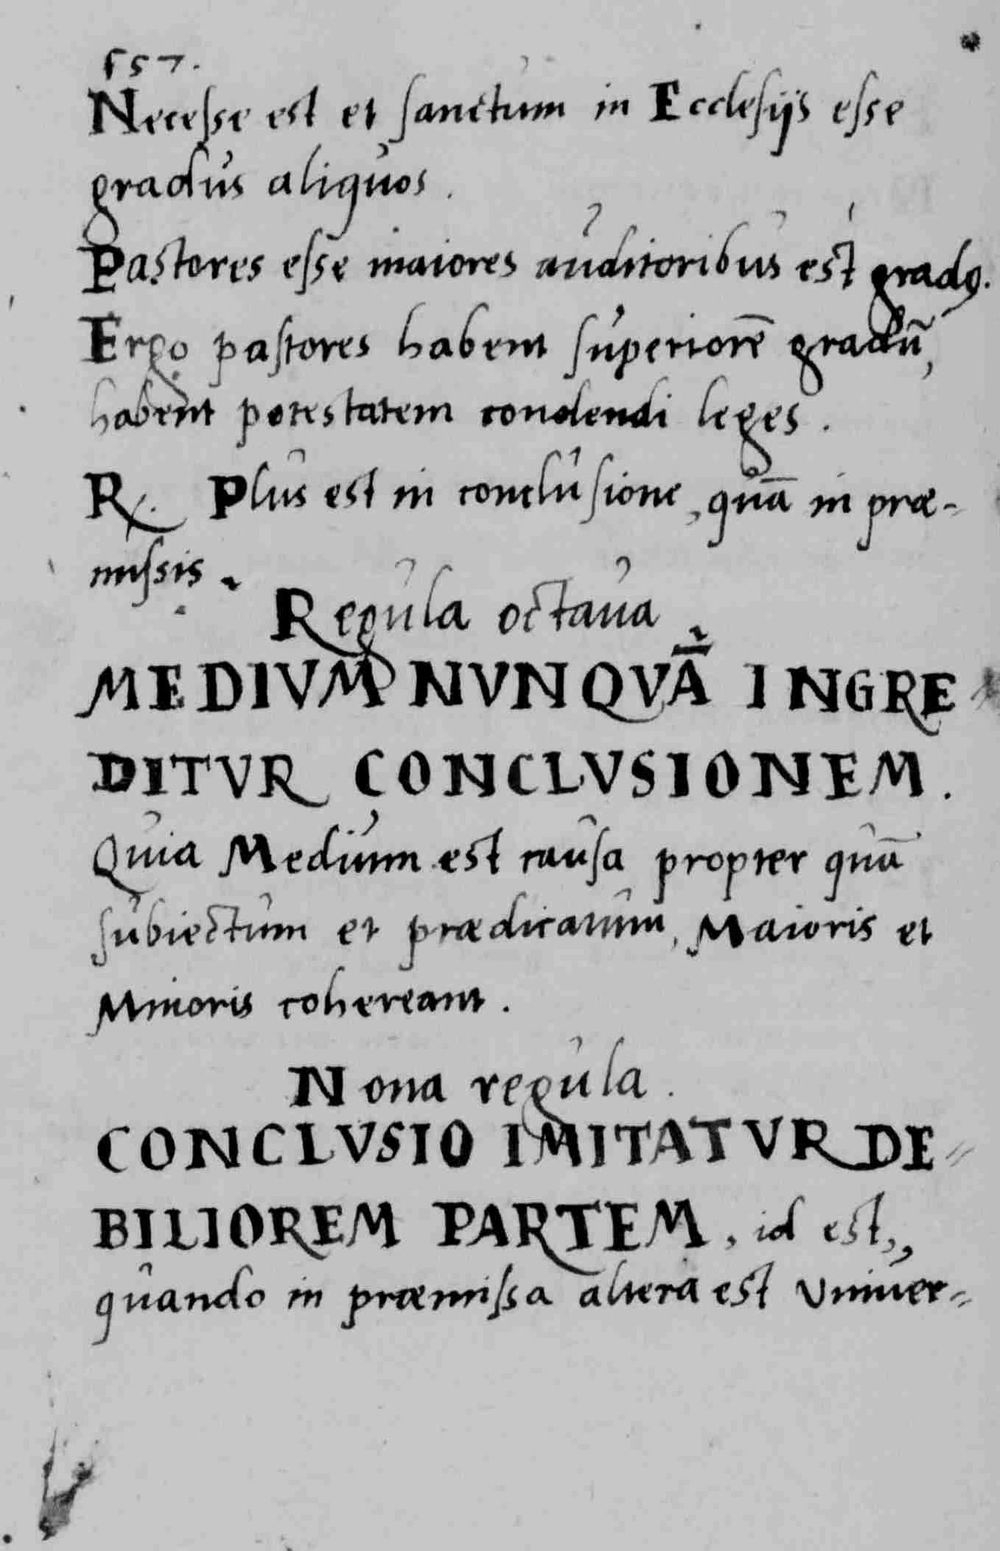 557.
Necesse est et sanctum in Ecclesijs esse
gradus aliquos.
Pastores esse maiores auditoribus est gradꝰ.
Ergo pastores habent superiorē gradū,
habent potestatem condendi leges.
℞. Plus est in conclusione, quā in præ-
missis.
Regula octaua.
MEDIVM NVNQVĀ INGRE
DITVR CONCLVSIONEM.
Quia Medium est causa propter quā
subiectum et prædicatum, Maioris et
Minoris cohereant.
Nona regula.
CONCLVSIO IMITATVR DE=
BILIOREM PARTEM, id est,
quando in præmissa altera est Vniuer=